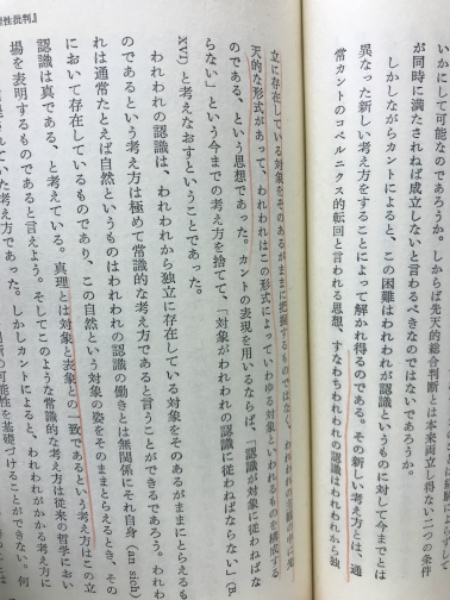 いかにして可能なのであろうか。しからば先天的綜合判断とは本来両立し得ない二つの条件
が同時に満たされねば成立しないと言わるべきなのではないであろうか。
しかしながらカントによると、この困難はわれわれが認識というものに対して今までとは
異なった新しい考え方をすることによって解かれ得るのである。その新しい考え方とは、通
常カントのコペルニクス的転回と言われる思想、すなわちわれわれの認識はわれわれから独
立に存在している対象をそのあるがままに把握するものではなく、われわれの主観の中に先
天的な形式があって、われわれはこの形式によっていわゆる対象といわれるものを構成する
のである、という思想であった。カントの表現を用いるならば、「認識が対象に従わねばな
らない」という今までの考え方を捨てて、「対象がわれわれの認識に従わねばならない」(B.
XVI) と考えなおすということであった。
われわれの認識は、われわれから独立に存在している対象をそのあるがままにとらえるも
のであるという考え方は極めて常識的な考え方であると言うことができるであろう。われわ
れは通常たとえば自然というものはわれわれの認識の働きとは無関係にそれ自身 (an sich)
において存在しているものであり、この自然という対象の姿をそのままとらえるとき、その
認識は真である、と考えている。真理とは対象と表象との一致であるという考え方はこの立
場を表明するものであると言えよう。そしてこのような常識的な考え方は従来の哲学におい
考え方であった。しかしカントによると、われわれがかかる考え方に
可能性を基礎づけることができない。何
性批判』